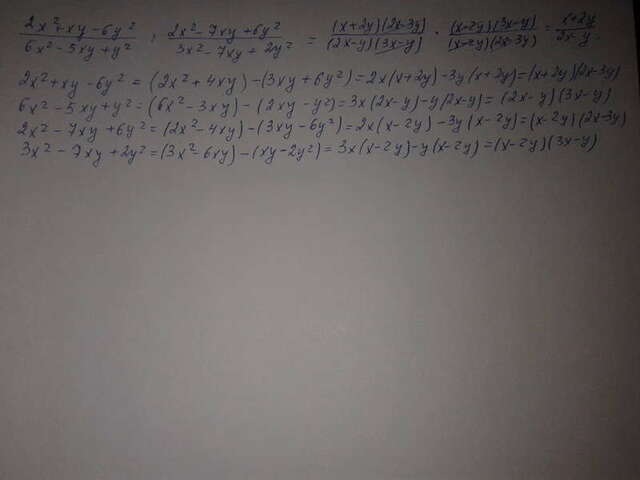 (2x²+xy-6y²)/(6x²-5xy+y²) : (2x²-7xy+6y²)/(3x²-7xy+2y²) = ((x+2y)(2x-3y))/((2x-y)(3x-y)) · ((x-2y)(3x-y))/((x-2y)(2x-3y)) = (x+2y)/(2x-y).
2x²+xy-6y² = (2x²+4xy)-(3xy+6y²)=2x(x+2y)-3y(x+2y)=(x+2y)(2x-3y)
6x²-5xy+y²=(6x²-3xy)-(2xy-y²)=3x(2x-y)-y(2x-y)=(2x-y)(3x-y)
2x²-7xy+6y²=(2x²-4xy)-(3xy-6y²)=2x(x-2y)-3y(x-2y)=(x-2y)(2x-3y)
3x²-7xy+2y²=(3x²-6xy)-(xy-2y²)=3x(x-2y)-y(x-2y)=(x-2y)(3x-y)